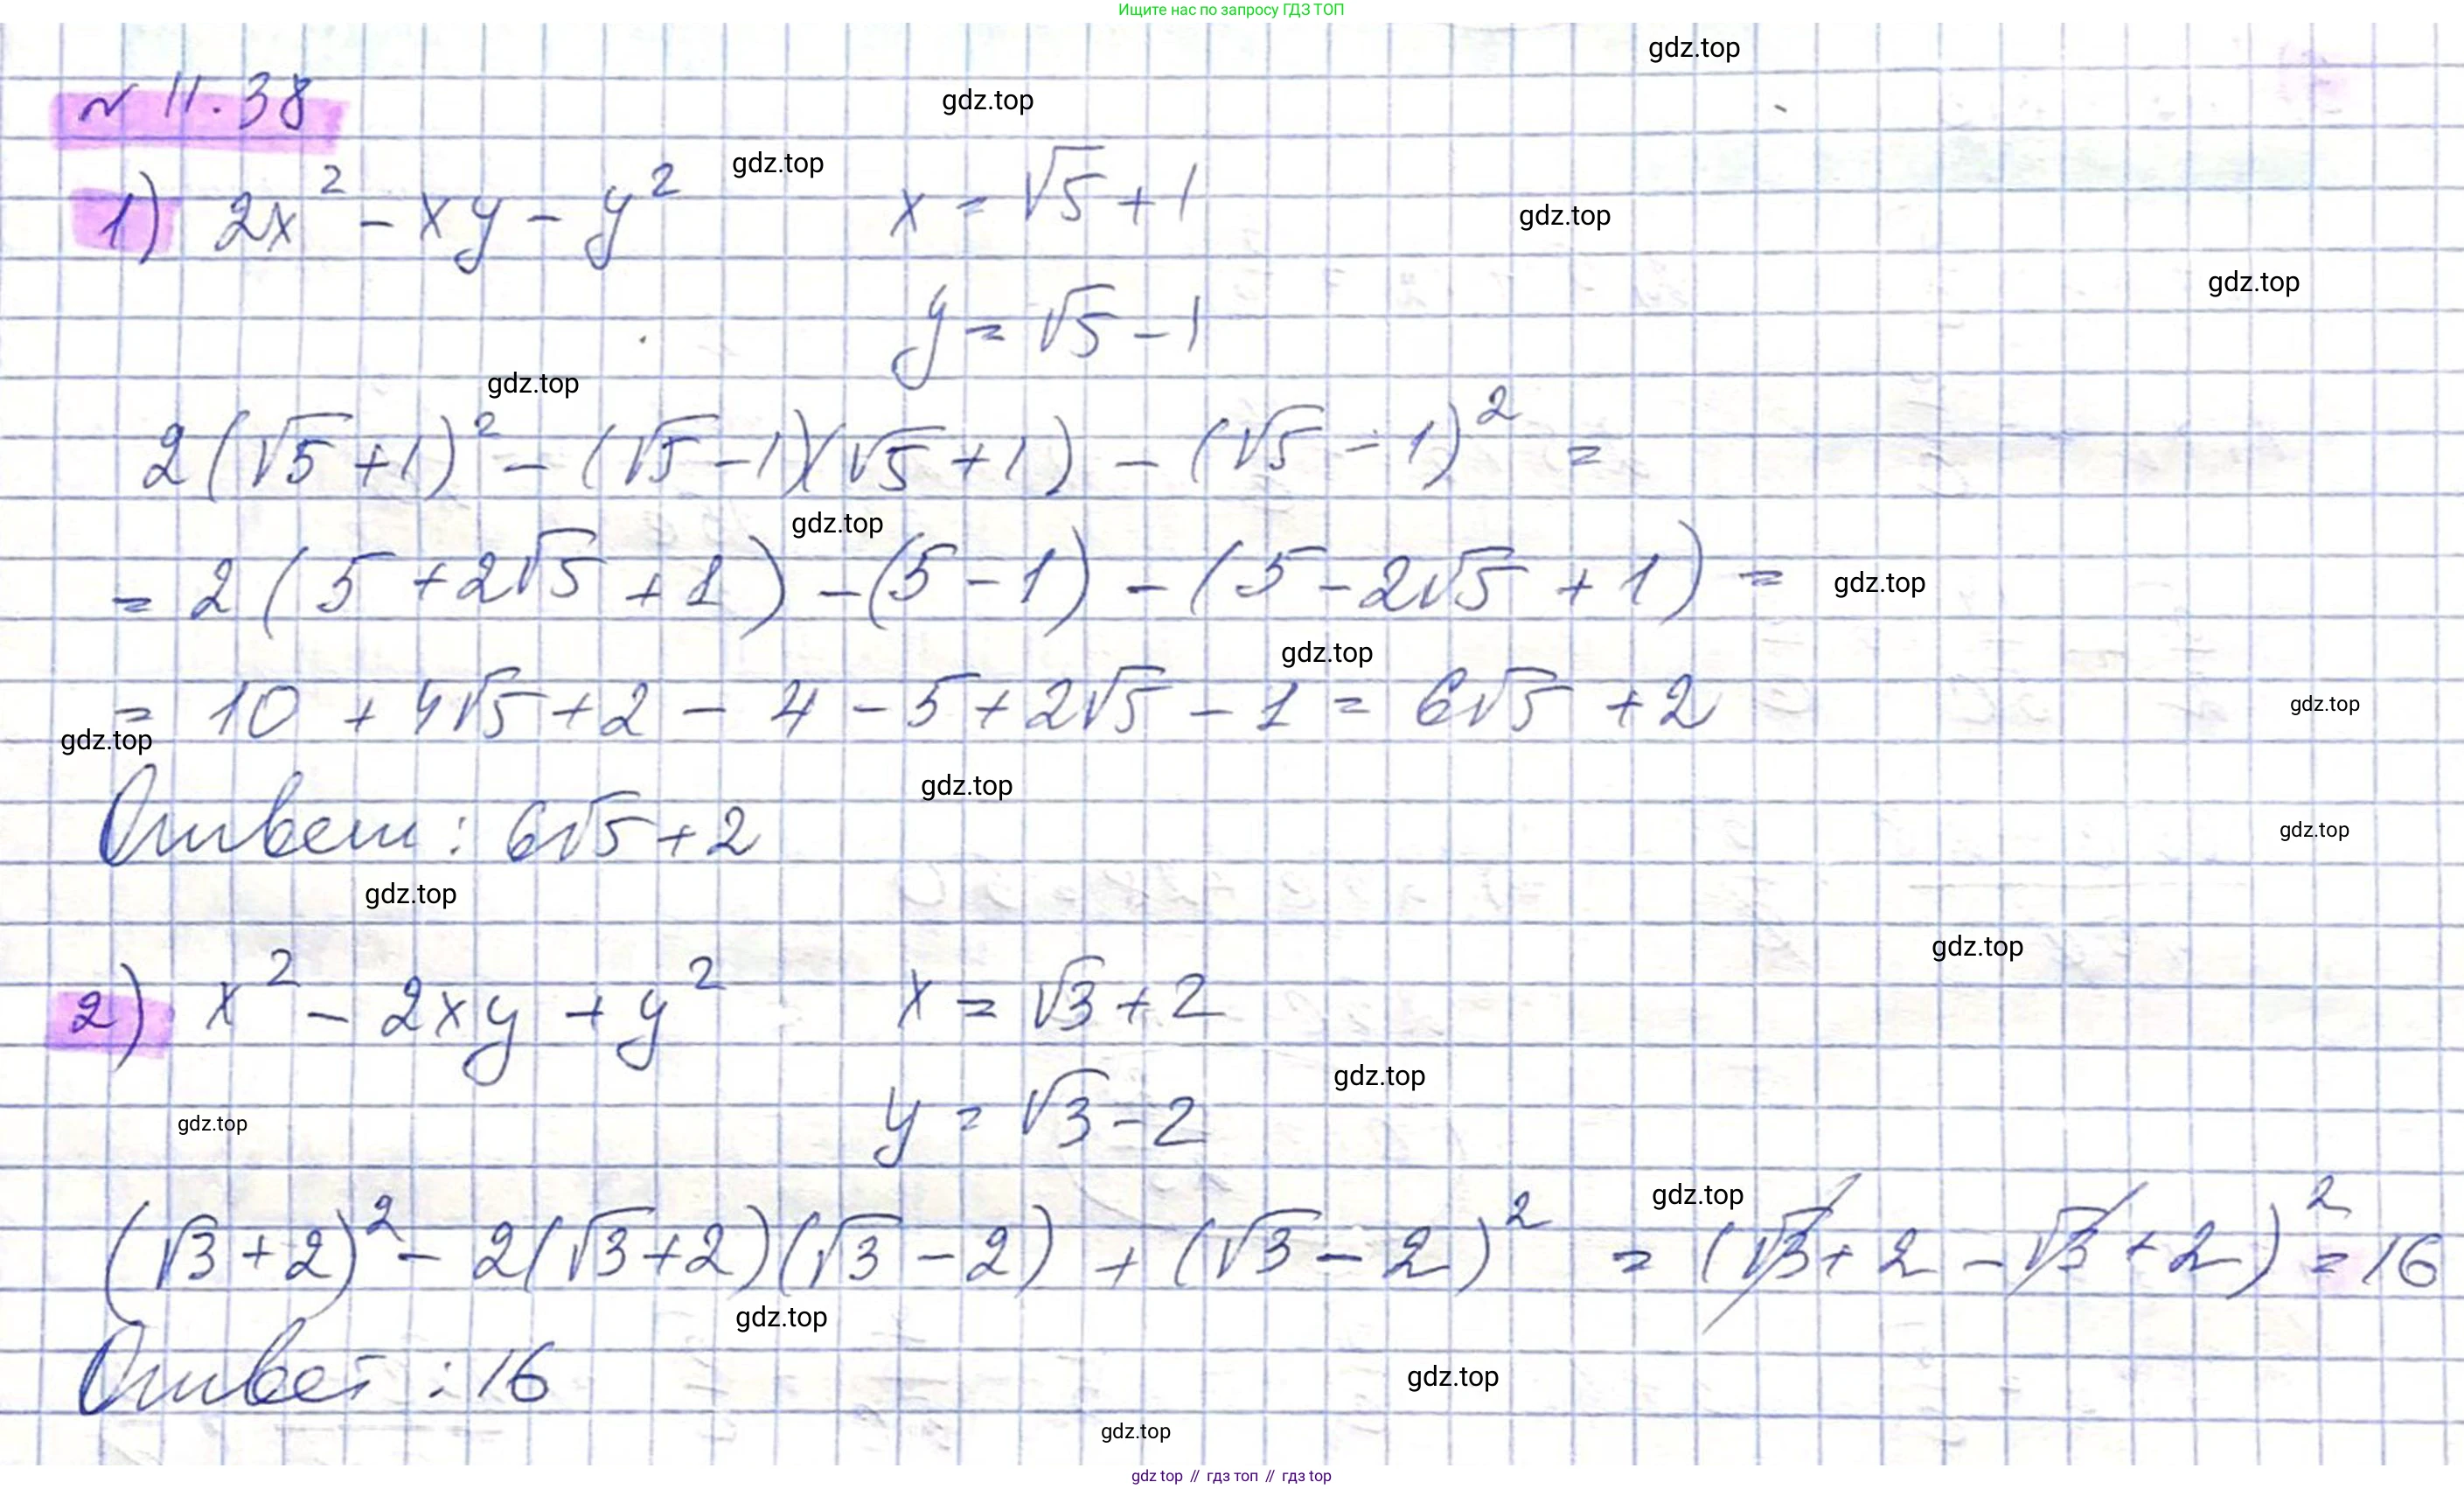 Ищите нас по запросу ГДЗ ТОП
gdz.top
№ 11.38
gdz.top
1) 2x² - xy - y² gdz.top x = √5 + 1
gdz.top
gdz.top
y = √5 - 1
gdz.top
2(√5 + 1)² - (√5 - 1)(√5 + 1) - (√5 - 1)² =
gdz.top
= 2(5 + 2√5 + 1) - (5 - 1) - (5 - 2√5 + 1) = gdz.top
gdz.top
= 10 + 4√5 + 2 - 4 - 5 + 2√5 - 1 = 6√5 + 2 gdz.top
gdz.top
gdz.top
Ответ: 6√5 + 2 gdz.top
gdz.top
gdz.top
2) x² - 2xy + y² x = √3 + 2
gdz.top
gdz.top y = √3 - 2
gdz.top
(√3 + 2)² - 2(√3 + 2)(√3 - 2) + (√3 - 2)² = (√3 + 2 - √3 + 2)² = 16
gdz.top
Ответ: 16 gdz.top
gdz.top
gdz top // гдз топ // гдз top